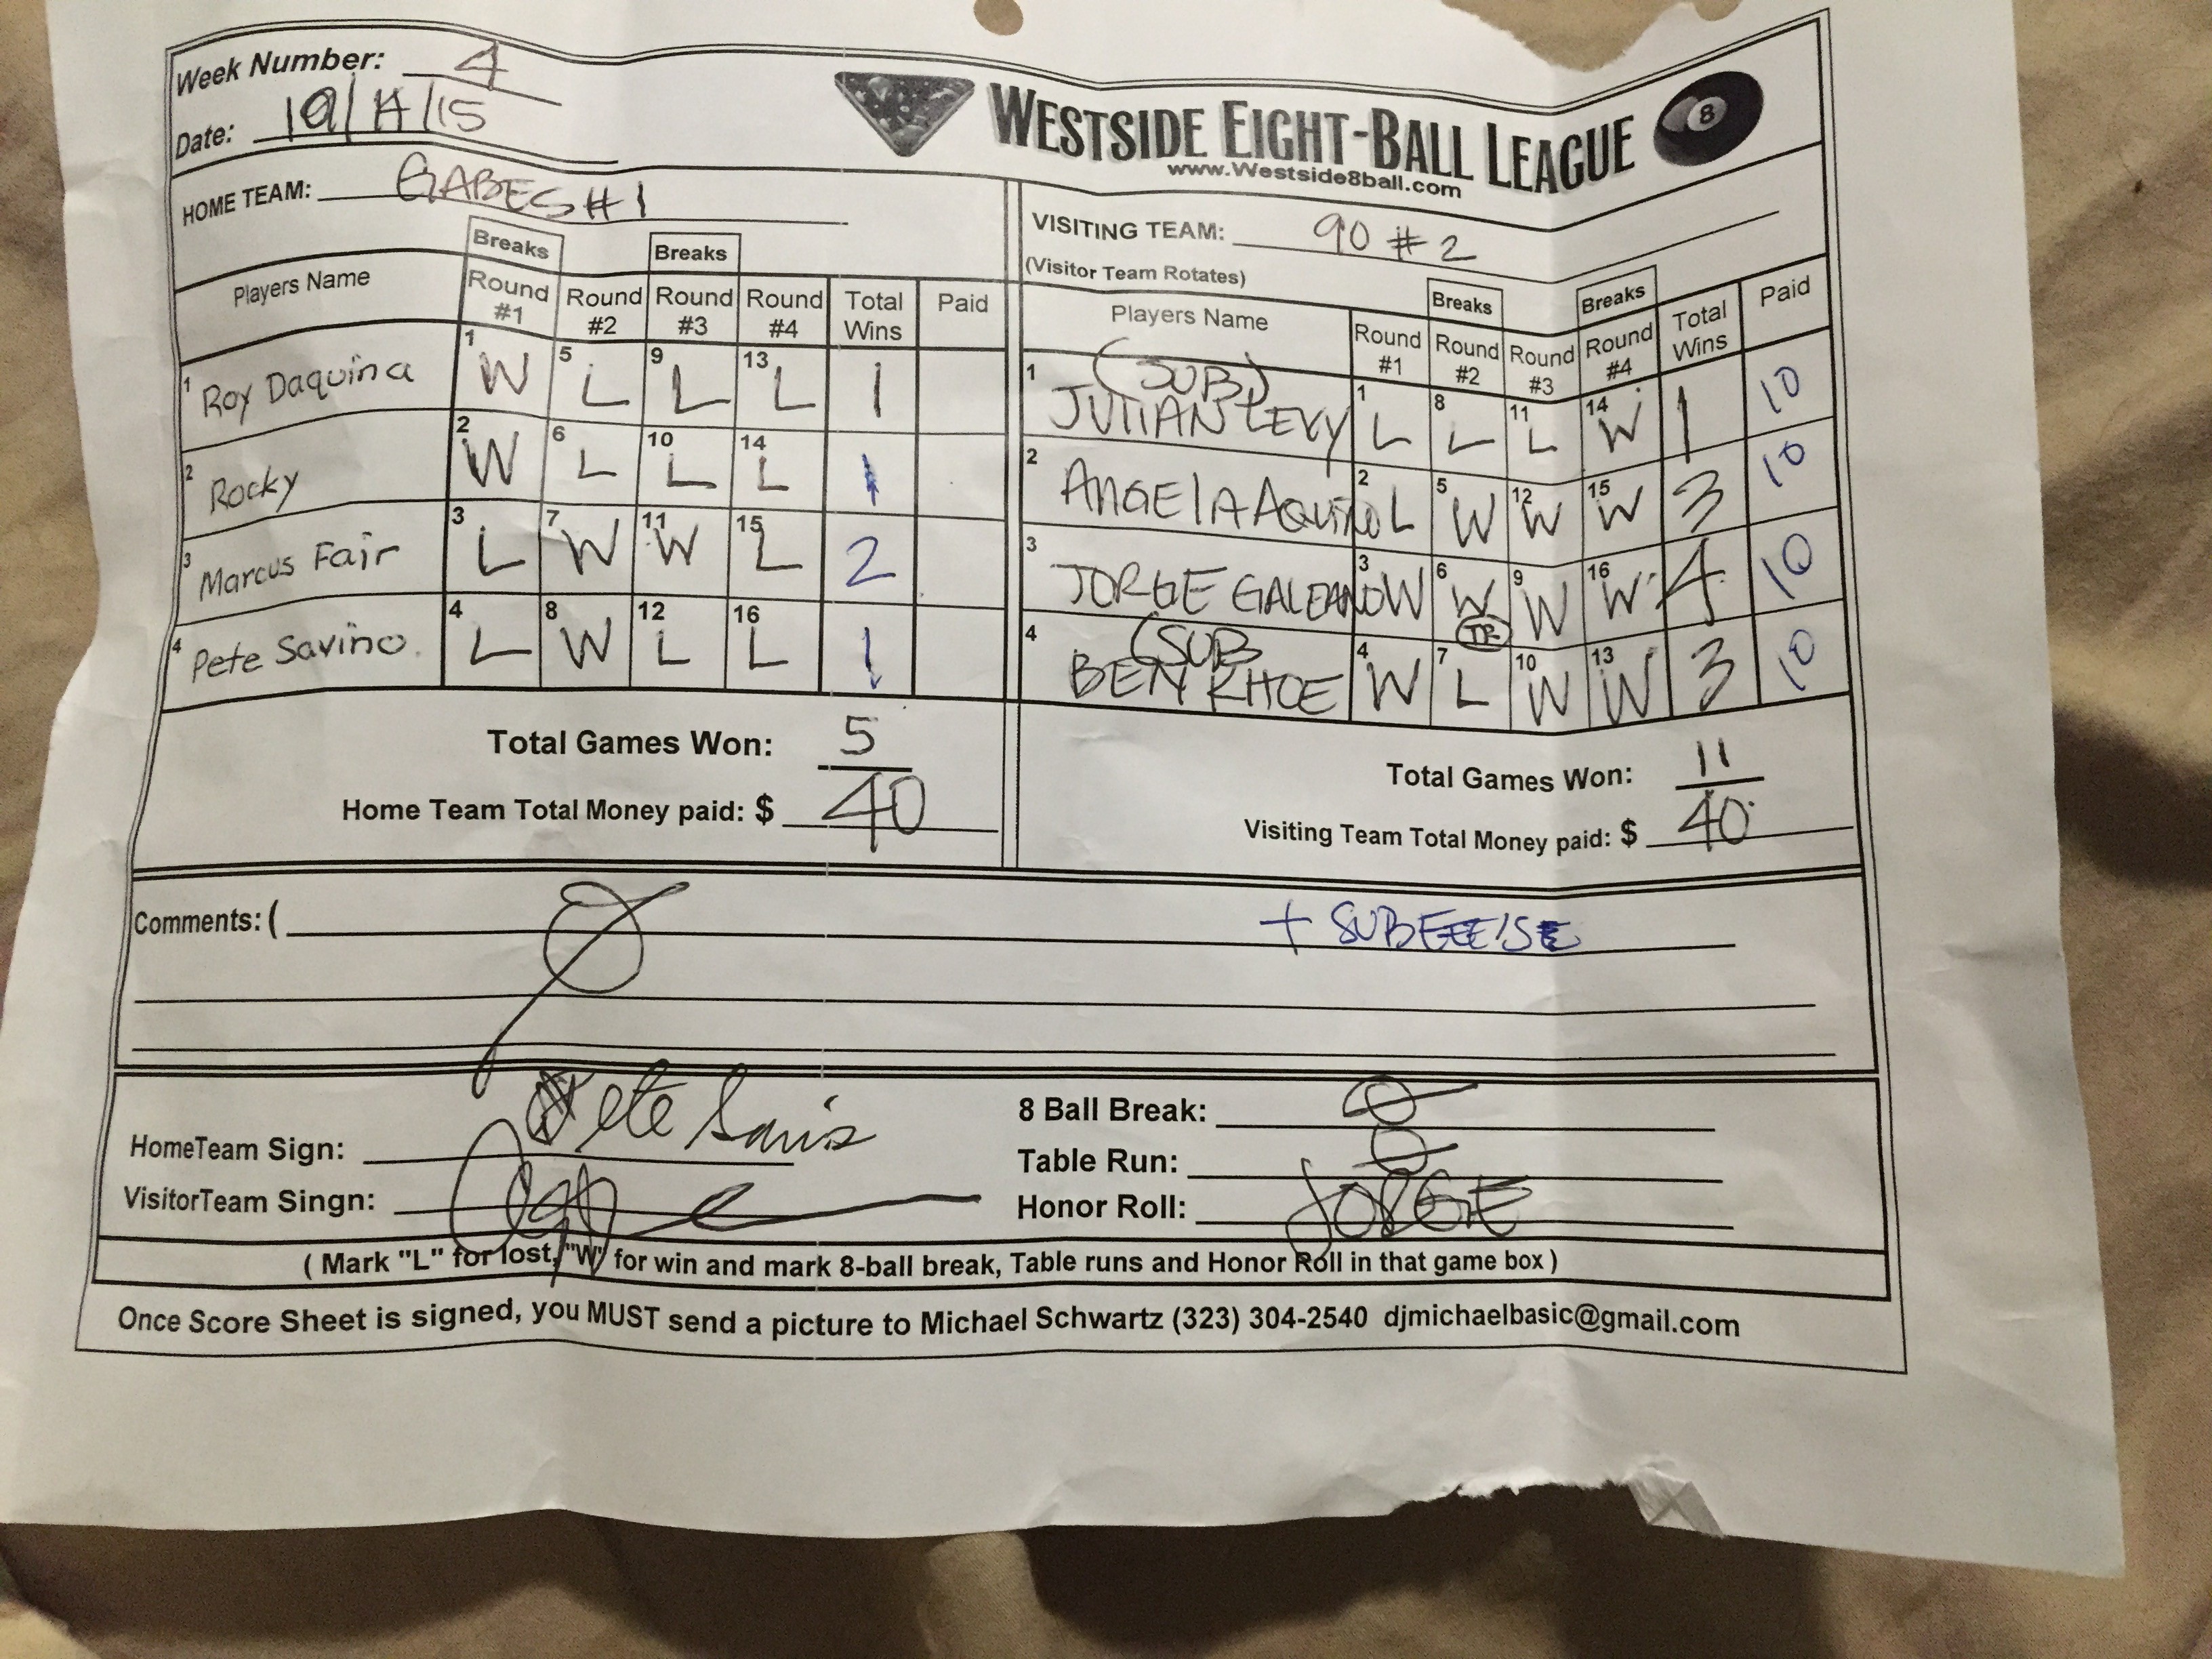 Week Number: 4
Date:
WESTSIDE EIGHT-BALL LEAGUE
www.Westside8ball.com
8
HOME TEAM: GABES #1
Breaks Breaks
Players Name Round #1 Round #2 Round #3 Round #4 Total Wins Paid
1 Roy Daquina 1 W 5 L 9 L 13 L 1
2 Rocky 2 W 6 L 10 L 14 L 1
3 Marcus Fair 3 L 7 W 11 W 15 L 2
4 Pete Savino. 4 L 8 W 12 L 16 L 1
Total Games Won: 5
Home Team Total Money paid: $ 40
VISITING TEAM: 90 #2
(Visitor Team Rotates)
Breaks Breaks
Players Name Round #1 Round #2 Round #3 Round #4 Total Wins Paid
(SUB)
1 JULIAN LEVY 1 L 8 L 11 L 14 W 1 10
2 ANGELA AQUINO 2 L 5 W 12 W 15 W 3 10
3 JORGE GALEANO 3 W 6 W 9 W 16 W 4 10
TR
(SUB
4 BEN KHOE 4 W 7 L 10 W 13 W 3 10
Total Games Won: 11
Visiting Team Total Money paid: $ 40
Comments: (
HomeTeam Sign: Pete Savino
VisitorTeam Singn:
8 Ball Break:
Table Run:
Honor Roll: JORGE
( Mark "L" for lost, "W" for win and mark 8-ball break, Table runs and Honor Roll in that game box )
Once Score Sheet is signed, you MUST send a picture to Michael Schwartz (323) 304-2540 djmichaelbasic@gmail.com